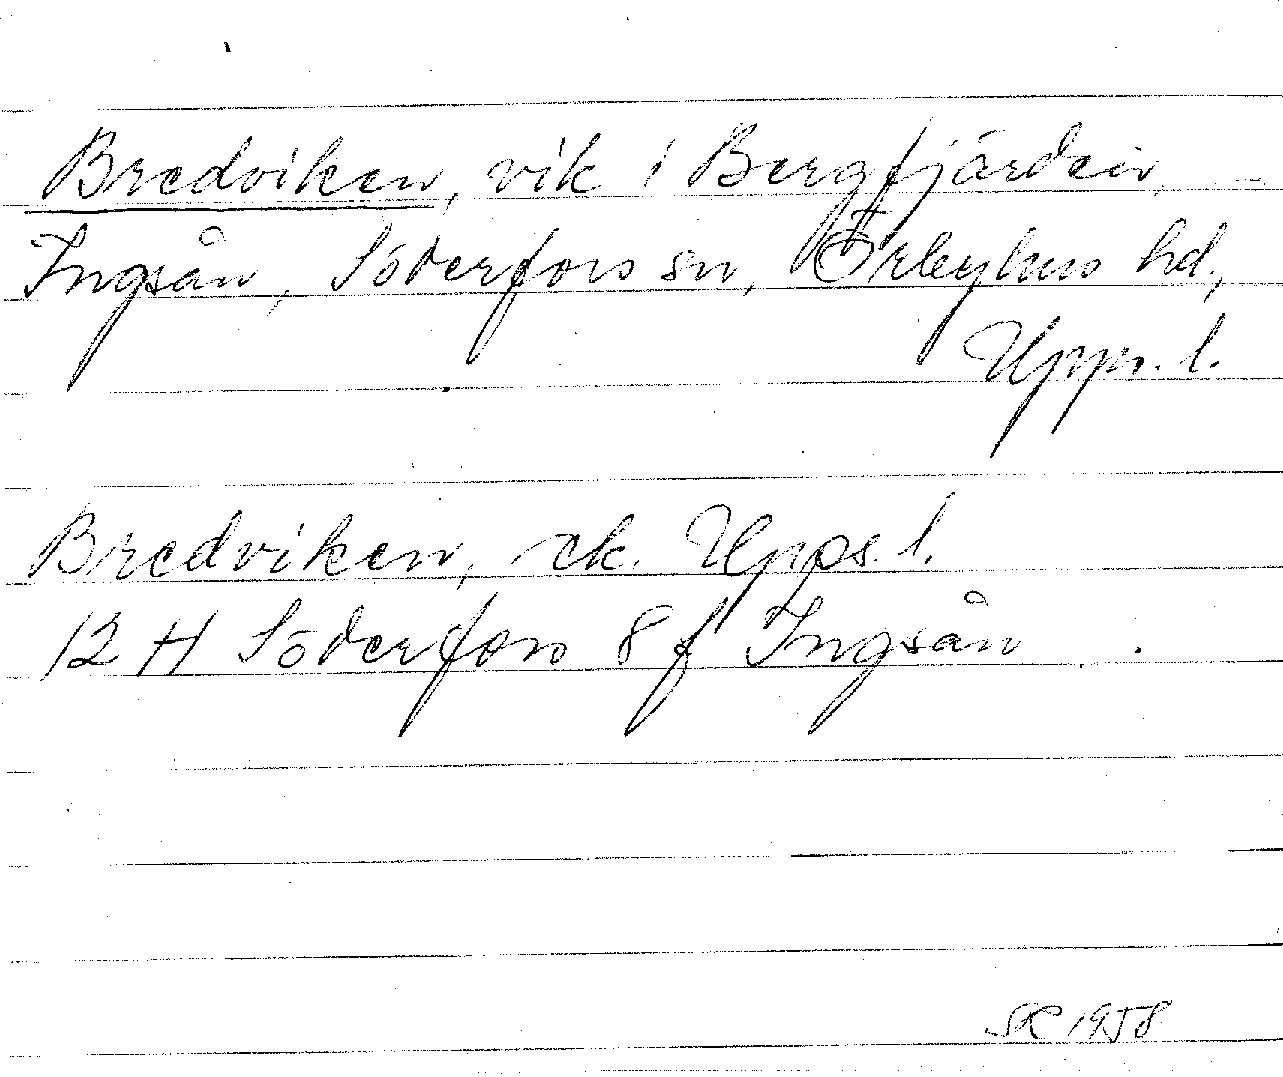 Bredviken, vik i Bergfjärden,
Ingsån, Söderfors sn, Örbyhus hd,
Upps. l.
Bredviken, ek. Upps. l.
12 H Söderfors 8 f Ingsån.
SR 1958